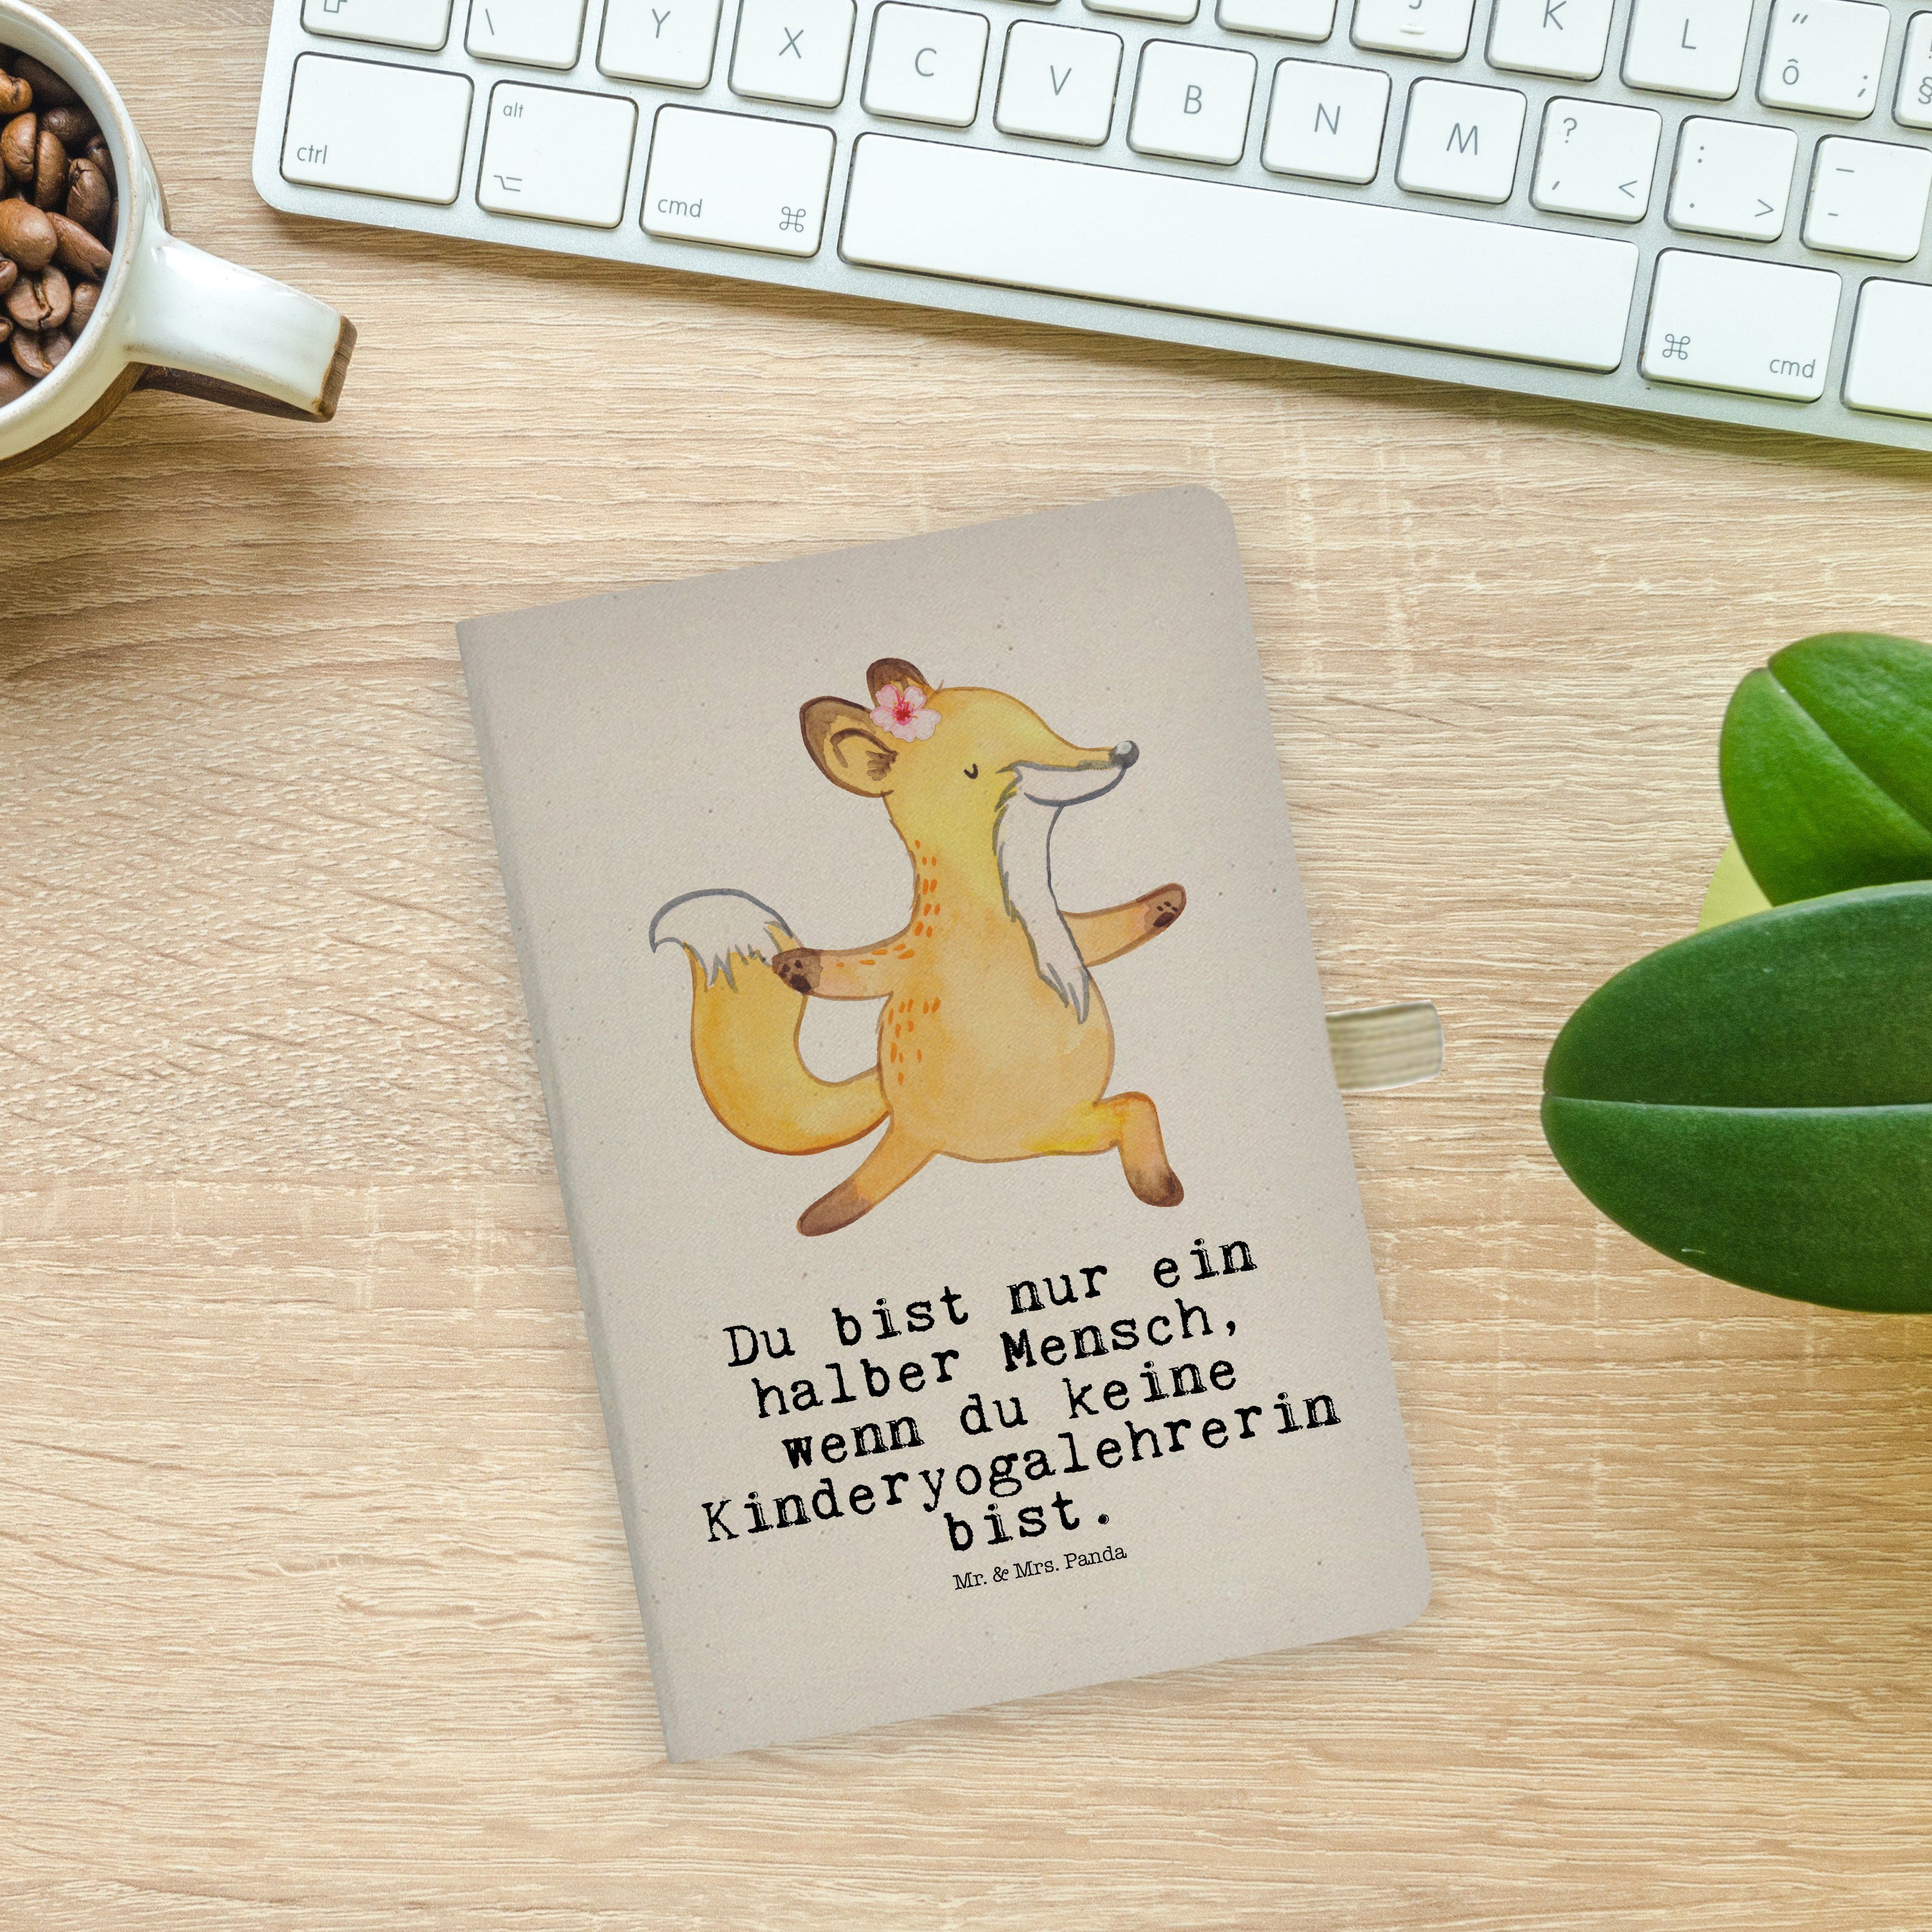 \ Y X C V B N M K L
" Ô ;
ctrl alt cmd ? , < : . > _ -
cmd
Du bist nur ein
halber Mensch,
wenn du keine
Kinderyogalehrerin
bist.
Mr. & Mrs. Panda